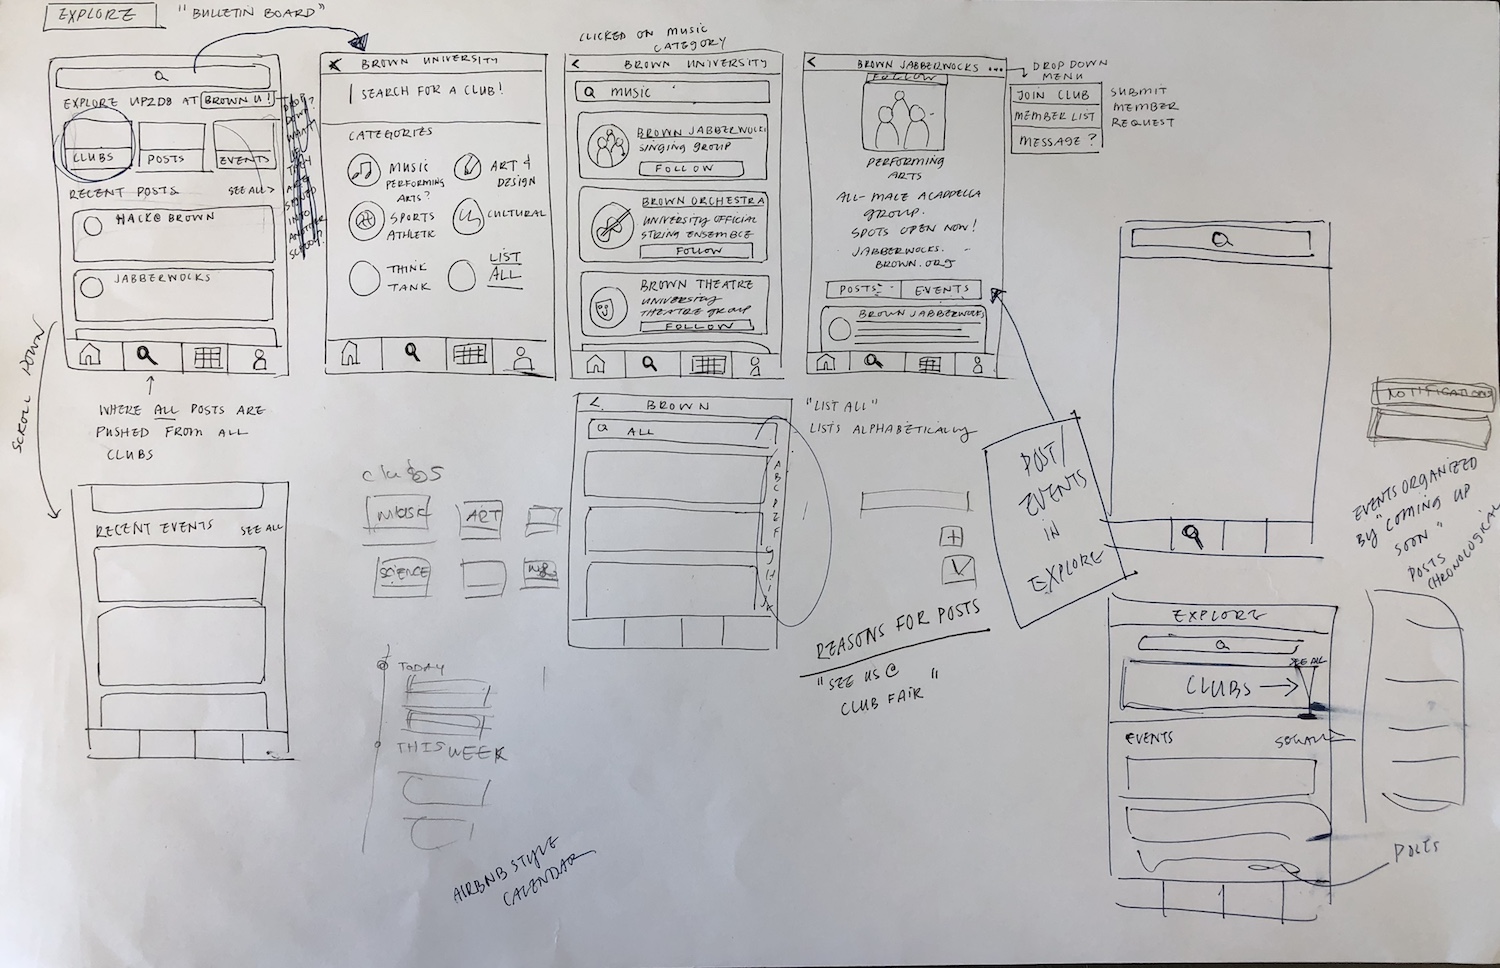 EXPLORE
"BULLETIN BOARD"
EXPLORE UP2D8 AT BROWN U!
CLUBS
POSTS
EVENTS
RECENT POSTS
SEE ALL >
HACK@ BROWN
JABBERWOCKS
SCROLL DOWN
WHERE ALL POSTS ARE
PUSHED FROM ALL
CLUBS
BROWN UNIVERSITY
SEARCH FOR A CLUB!
CATEGORIES
MUSIC
PERFORMING
ARTS?
ART &
DESIGN
SPORTS
ATHLETIC
CULTURAL
THINK
TANK
LIST
ALL
CLICKED ON MUSIC
CATEGORY
< BROWN UNIVERSITY
MUSIC
BROWN JABBERWOCKS
SINGING GROUP
FOLLOW
BROWN ORCHESTRA
UNIVERSITY OFFICIAL
STRING ENSEMBLE
FOLLOW
BROWN THEATRE
UNIVERSITY
THEATRE GROUP
FOLLOW
< BROWN JABBERWOCKS ...
FOLLOW
PERFORMING
ARTS
ALL-MALE ACAPPELLA
GROUP.
SPOTS OPEN NOW!
JABBERWOCKS.
BROWN.ORG
POSTS
EVENTS
BROWN JABBERWOCKS
DROP DOWN
MENU
JOIN CLUB
MEMBER LIST
MESSAGE?
SUBMIT
MEMBER
REQUEST
RECENT EVENTS
SEE ALL
clubs
MUSIC
ART
SCIENCE
TODAY
THIS WEEK
AIRBNB STYLE
CALENDAR
< BROWN
ALL
A
B
C
D
E
F
G
H
I
J
K
"LIST ALL"
LISTS ALPHABETICALLY
REASONS FOR POSTS
"SEE US @
CLUB FAIR"
POST/
EVENTS
IN
EXPLORE
NOTIFICATIONS
EVENTS ORGANIZED
BY "COMING UP
SOON"
POSTS
CHRONOLOGICAL
EXPLORE
SEE ALL
CLUBS
EVENTS
SEE ALL
POSTS